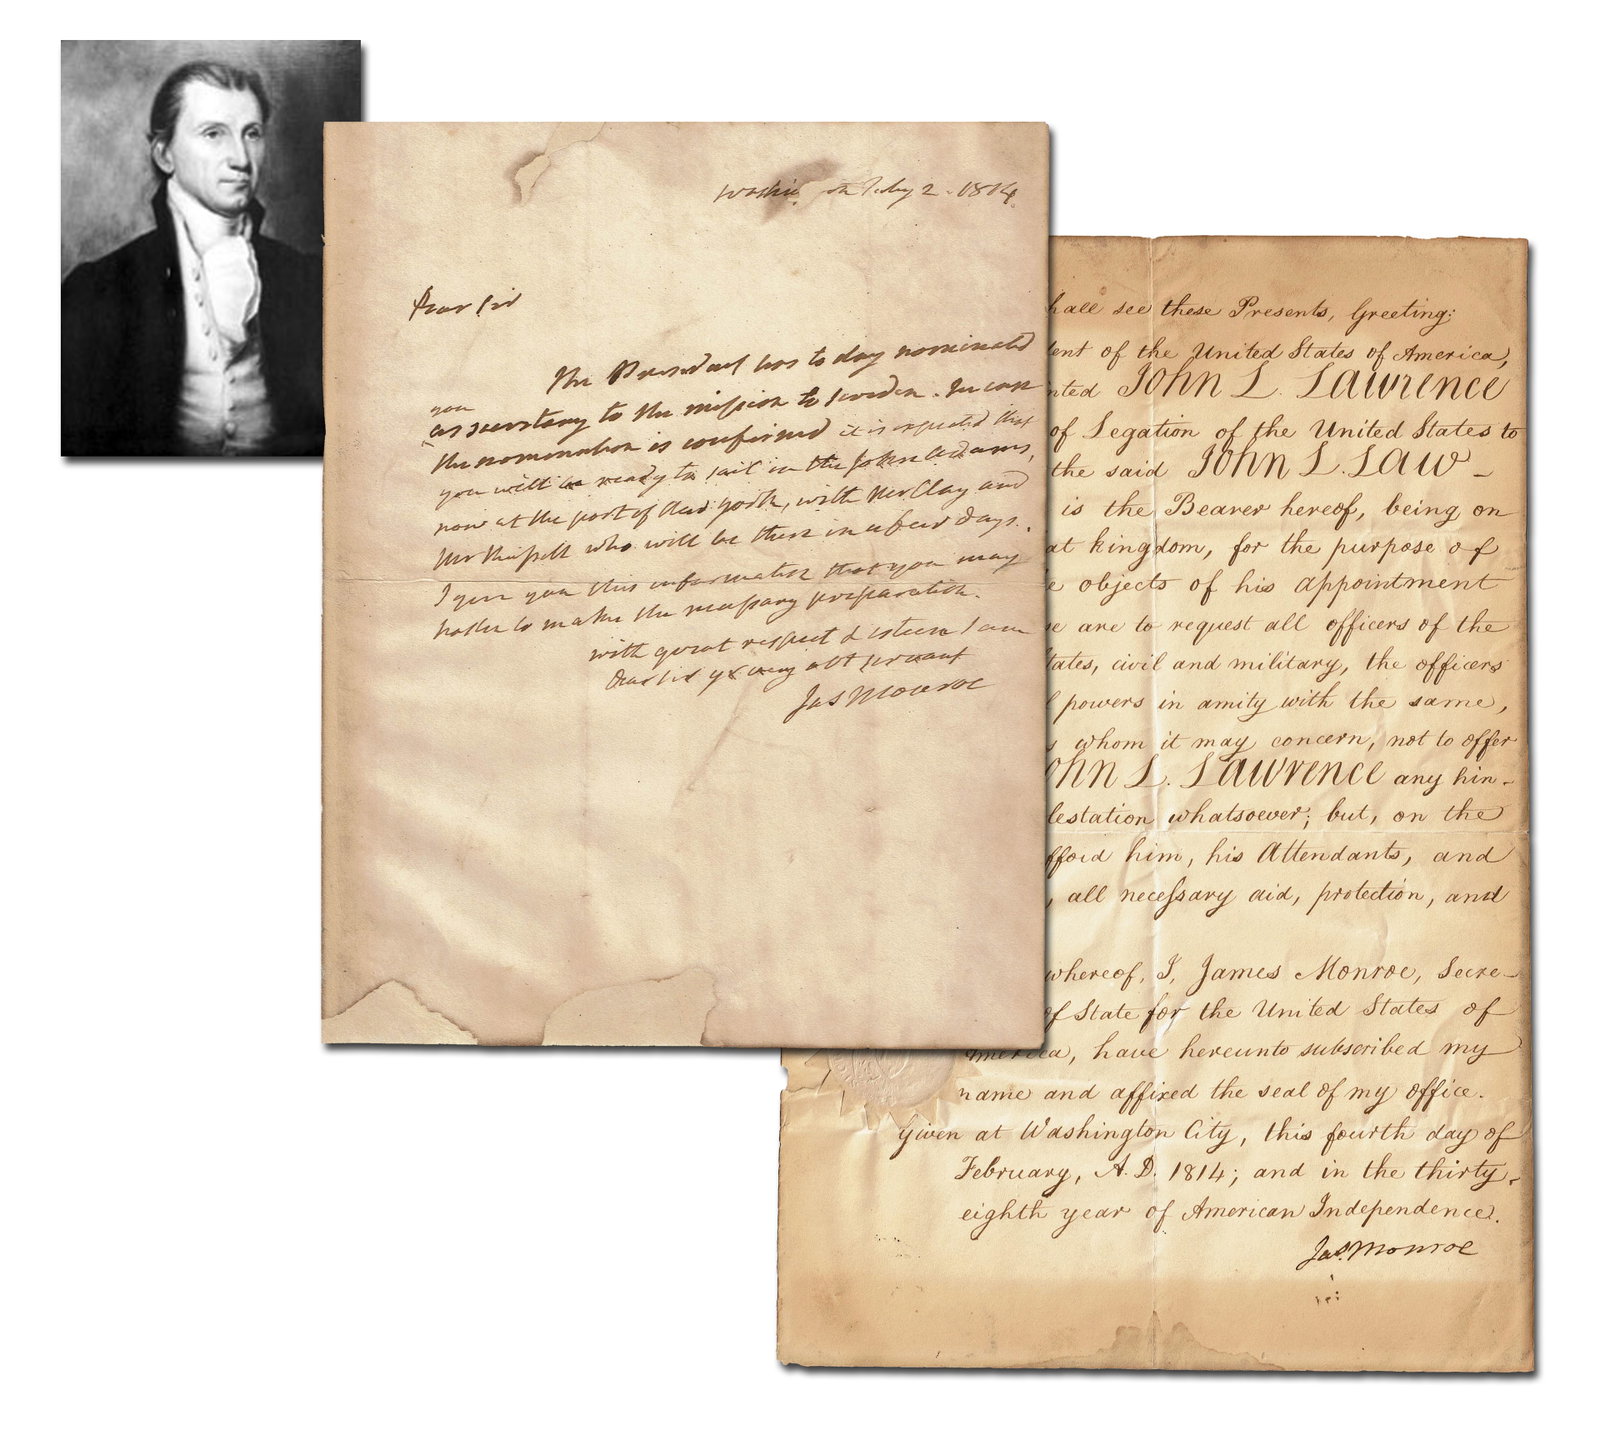 Washi on Feby 2. 1814.
Dear Sir
The President has to day nominated
you
as secretary to the mission to Sweden. In case
the nomination is confirmed it is expected that
you will be ready to sail in the John Adams,
now at the port of New york, with Mr Clay and
Mr Russell who will be there in a few days.
I give you this information that you may
hasten to make the necessary preparation.
with great respect & esteem I am
Dear Sir yr very obt servant
Jas Monroe
hall see these Presents, Greeting:
dent of the United States of America,
nted John L. Lawrence
of Legation of the United States to
the said John L. Law-
is the Bearer hereof, being on
at kingdom, for the purpose of
e objects of his appointment
se are to request all officers of the
tates, civil and military, the officers
l powers in amity with the same,
s whom it may concern, not to offer
ohn L. Lawrence any hin-
lestation whatsoever; but, on the
fford him, his Attendants, and
, all necessary aid, protection, and
whereof, I, James Monroe, Secre-
of State for the United States of
America, have hereunto subscribed my
name and affixed the seal of my office.
Given at Washington City, this fourth day of
February, A.D. 1814; and in the thirty-
eighth year of American Independence.
Jas. Monroe